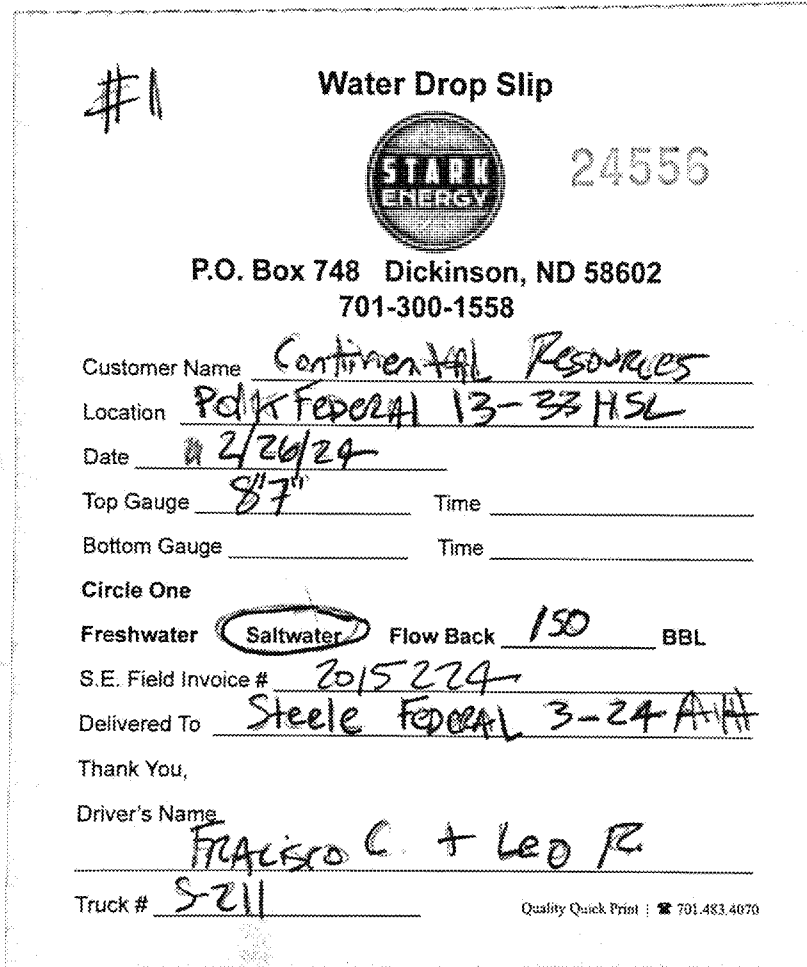 #1
Water Drop Slip
STARK
ENERGY
24556
P.O. Box 748 Dickinson, ND 58602
701-300-1558
Customer Name Continental Resources
Location Polk Federal 13-33 HSL
Date 2/26/24
Top Gauge 8'7" Time
Bottom Gauge Time
Circle One
Freshwater Saltwater Flow Back 150 BBL
S.E. Field Invoice # 2015224
Delivered To Steele Federal 3-24
Thank You,
Driver's Name
FRACisco C. + Leo R.
Truck # S-211
Quality Quick Print | ☎ 701.483.4070